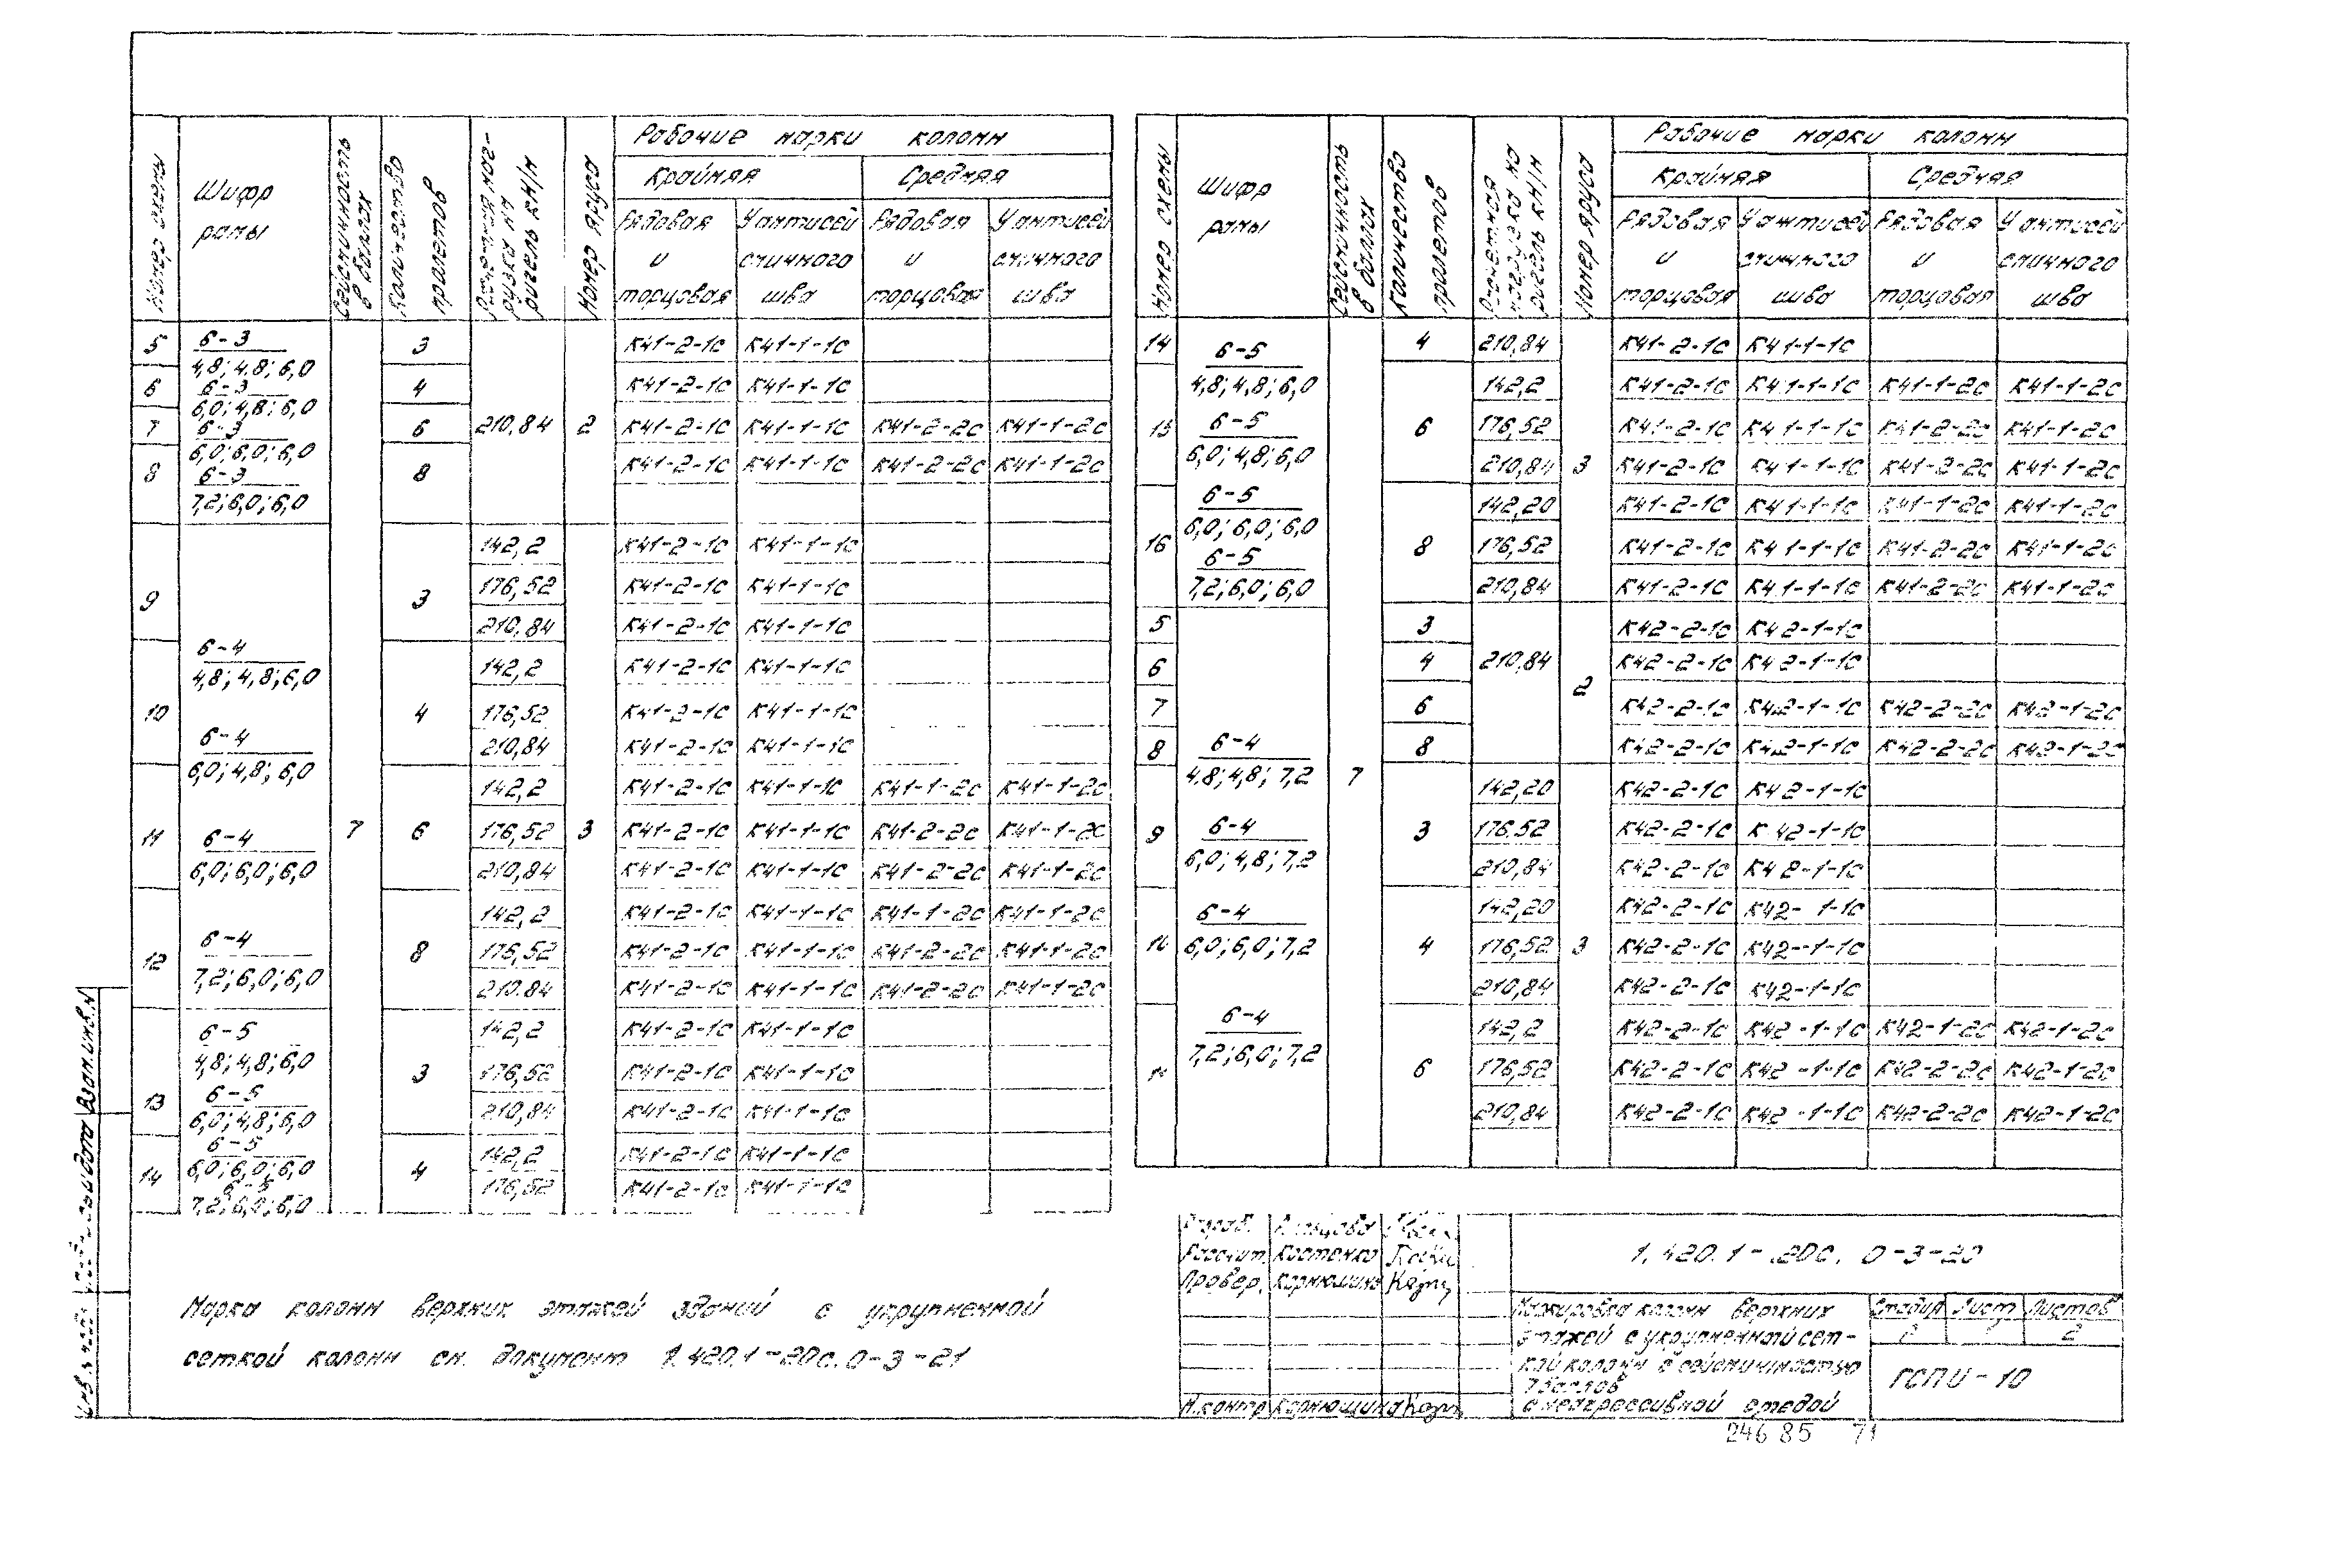 Номер схемы
Шифр рамы
Сейсмичность в баллах
Количество пролетов
Расчетная наг-
рузка на
ригель кН/м
Номер яруса
Рабочие марки колонн
Крайняя Средняя
Рядовая и торцовая
У антисейсмичного шва
Рядовая и торцовая
У антисейсмичного шва
5 6-3 3 К41-2-1С К41-1-1С
4,8; 4,8; 6,0
6 6-3 4 К41-2-1С К41-1-1С
6,0; 4,8; 6,0
7 6-3 6 210,84 2 К41-2-1С К41-1-1С К41-2-2С К41-1-2С
6,0; 6,0; 6,0
8 6-3 8 К41-2-1С К41-1-1С К41-2-2С К41-1-2С
7,2; 6,0; 6,0
142,2 К41-2-1С К41-1-1С
9 3 176,52 К41-2-1С К41-1-1С
210,84 К41-2-1С К41-1-1С
6-4
4,8; 4,8; 6,0
142,2 К41-2-1С К41-1-1С
10 4 176,52 К41-2-1С К41-1-1С
6-4
6,0; 4,8; 6,0
210,84 К41-2-1С К41-1-1С
142,2 К41-2-1С К41-1-1С К41-1-2С К41-1-2С
11 6-4 7 6 176,52 3 К41-2-1С К41-1-1С К41-2-2С К41-1-2С
6,0; 6,0; 6,0
210,84 К41-2-1С К41-1-1С К41-2-2С К41-1-2С
142,2 К41-2-1С К41-1-1С К41-1-2С К41-1-2С
12 6-4 8 176,52 К41-2-1С К41-1-1С К41-2-2С К41-1-2С
7,2; 6,0; 6,0
210.84 К41-2-1С К41-1-1С К41-2-2С К41-1-2С
6-5 142,2 К41-2-1С К41-1-1С
4,8; 4,8; 6,0
13 3 176,52 К41-2-1С К41-1-1С
6-5
6,0; 4,8; 6,0
210,84 К41-2-1С К41-1-1С
6-5 142,2 К41-2-1С К41-1-1С
6,0; 6,0; 6,0
14 4 176,52 К41-2-1С К41-1-1С
7,2; 6,0; 6,0
Номер схемы
Шифр рамы
Сейсмичность в баллах
Количество пролетов
Расчетная
нагрузка на
ригель кН/м
Номер яруса
Рабочие марки колонн
Крайняя Средняя
Рядовая и торцовая
У антисейсмичного шва
Рядовая и торцовая
У антисейсмичного шва
14 6-5 4 210,84 К41-2-1С К41-1-1С
4,8; 4,8; 6,0
142,2 К41-2-1С К41-1-1С К41-1-2С К41-1-2С
15 6-5 6 176,52 К41-2-1С К41-1-1С К41-2-2С К41-1-2С
6,0; 4,8; 6,0
210,84 3 К41-2-1С К41-1-1С К41-2-2С К41-1-2С
6-5 142,20 К41-2-1С К41-1-1С К41-1-2С К41-1-2С
6,0; 6,0; 6,0
16 6-5 8 176,52 К41-2-1С К41-1-1С К41-2-2С К41-1-2С
7,2; 6,0; 6,0
210,84 К41-2-1С К41-1-1С К41-2-2С К41-1-2С
5 3 К42-2-1С К42-1-1С
6 4 210,84 К42-2-1С К42-1-1С
2
7 6 К42-2-1С К42-1-1С К42-2-2С К42-1-2С
8 6-4 8 К42-2-1С К42-1-1С К42-2-2С К42-1-2С
4,8; 4,8; 7,2 7
142,20 К42-2-1С К42-1-1С
9 6-4 3 176.52 К42-2-1С К42-1-1С
6,0; 4,8; 7,2
210,84 К42-2-1С К42-1-1С
6-4 142,20 К42-2-1С К42-1-1С
10 6,0; 6,0; 7,2 4 176,52 3 К42-2-1С К42-1-1С
210,84 К42-2-1С К42-1-1С
6-4 142,2 К42-2-1С К42-1-1С К42-1-2С К42-1-2С
7,2; 6,0; 7,2
11 6 176,52 К42-2-1С К42-1-1С К42-2-2С К42-1-2С
210,84 К42-2-1С К42-1-1С К42-2-2С К42-1-2С
Марка колонн верхних этажей зданий с укрупненной
сеткой колонн см. документ 1.420.1-20с.0-3-21
Разраб.
Рассчит. Костенко
Провер. Корнюшина
Н.контр Корнюшина
1.420.1-20с. 0-3-20
Маркировка колонн верхних
этажей с укрупненной сет-
кой колонн с сейсмичностью
7 баллов
с неагрессивной средой
Стадия Лист Листов
Р 2
ГСПИ-10
24685 71
Взам.инв.N